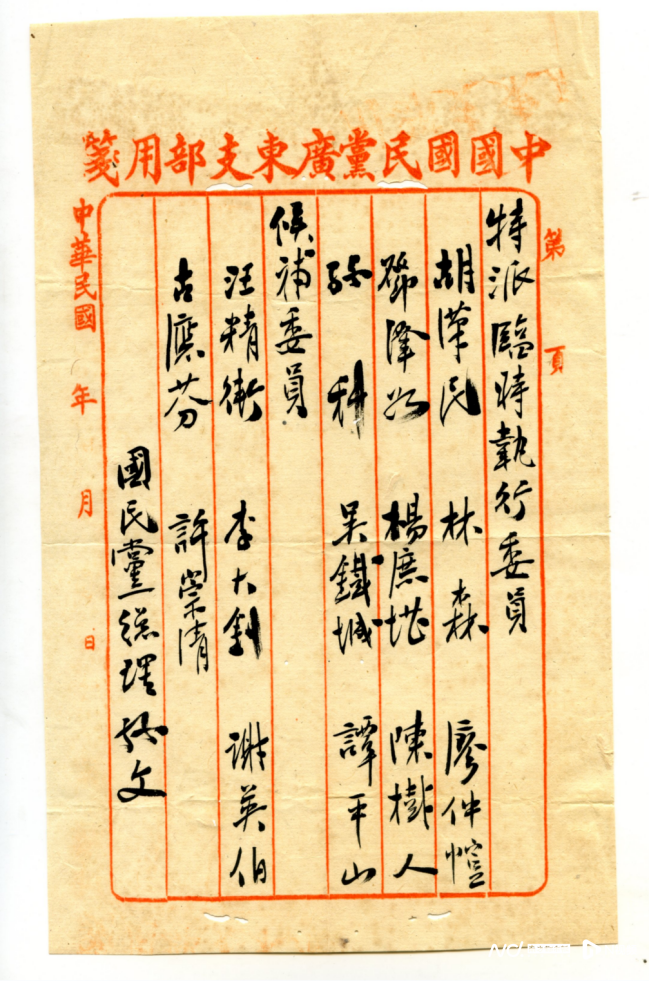 中國國民黨廣東支部用箋
第 頁
特派臨時執行委員
胡漢民 林森 廖仲愷
鄧澤如 楊庶堪 陳樹人
孫科 吳鐵城 譚平山
候補委員
汪精衛 李大釗 謝英伯
古應芬 許崇清
國民黨總理孫文
中華民國 年 月 日